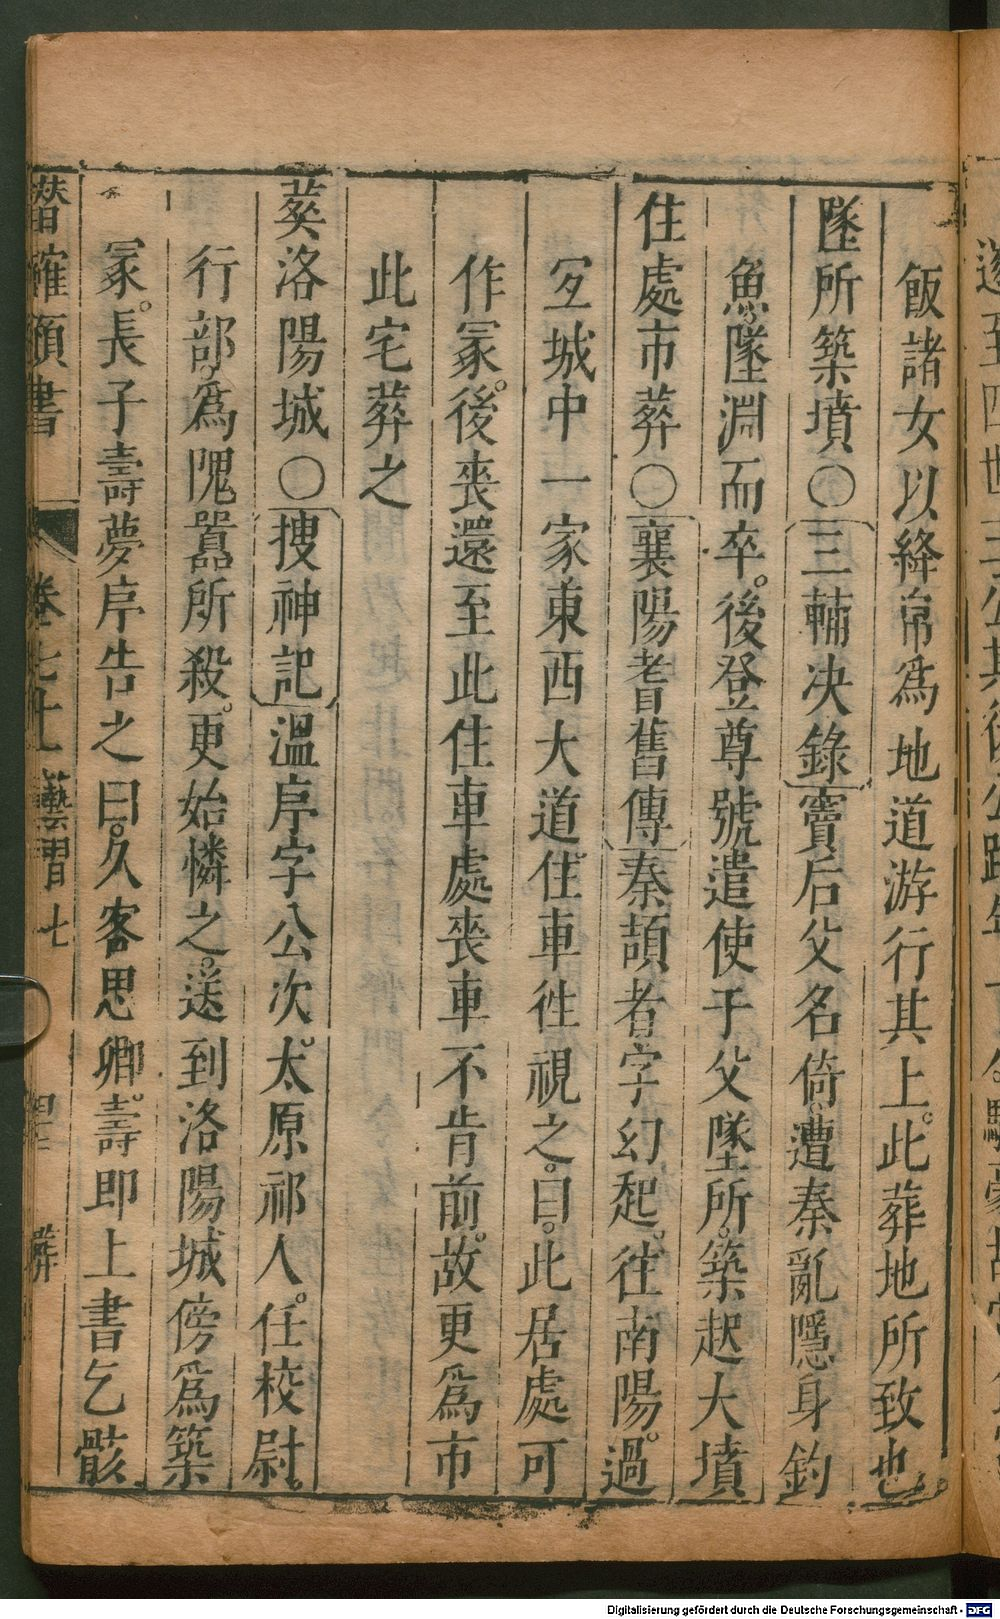 飯諸女以絳帛爲地道游行其上。此葬地所致也
墜所築墳○三輔决錄竇后父名倚。遭秦亂隱身釣
魚。墜淵而卒。後登尊號遣使于父墜所。築起大墳
住處市葬○襄陽耆舊傳秦頡者字幻起。徃南陽。過
宜城中一家東西大道。住車徃視之。曰。此居處可
作冡。後喪還至此住車處喪車不肯前。故更爲市
此宅葬之
葬洛陽城○搜神記溫序字公次。太原祁人。任校尉。
行部。爲隗囂所殺。更始憐之。送到洛陽城傍爲築
冡。長子壽夢序告之曰。久客思鄉。壽即上書乞骸
潛確類書
卷七十 藝習七 葬
Digitalisierung gefördert durch die Deutsche Forschungsgemeinschaft - DFG